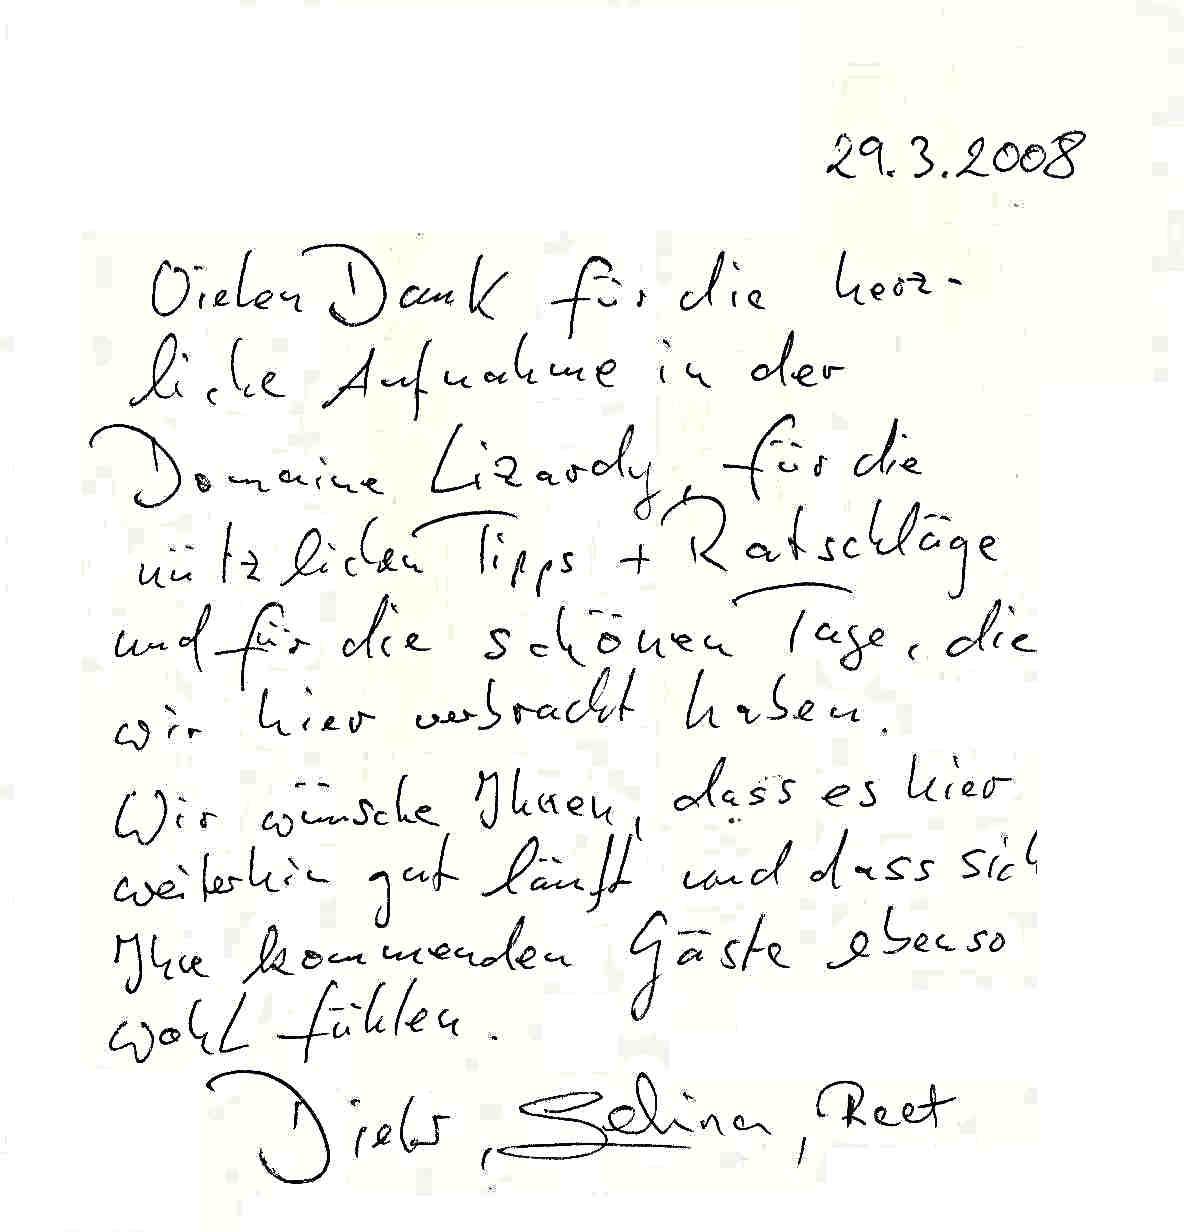 29.3.2008
Vielen Dank für die herz-
liche Aufnahme in der
Domaine Lizardy, für die
nützlichen Tipps + Ratschläge
und für die schönen Tage, die
wir hier verbracht haben.
Wir wünsche Ihnen, dass es hier
weiterhin gut läuft und dass sich
Ihre kommenden Gäste ebenso
wohl fühlen.
Dieter, Selina, Reet